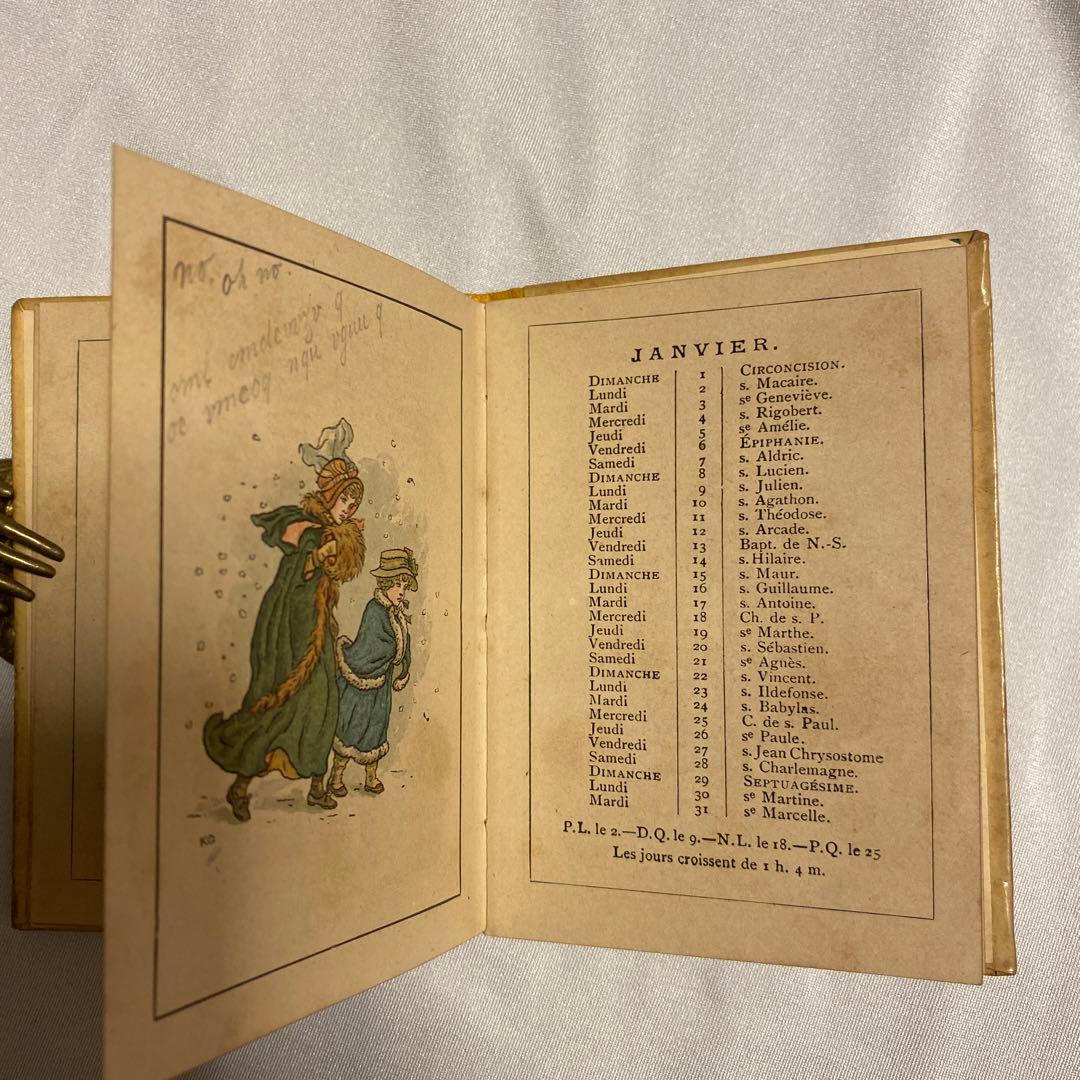 no. oh no.
KG
JANVIER.
DIMANCHE 1 CIRCONCISION.
Lundi 2 s. Macaire.
Mardi 3 se Geneviève.
Mercredi 4 s. Rigobert.
Jeudi 5 se Amélie.
Vendredi 6 ÉPIPHANIE.
Samedi 7 s. Aldric.
DIMANCHE 8 s. Lucien.
Lundi 9 s. Julien.
Mardi 10 s. Agathon.
Mercredi 11 s. Théodose.
Jeudi 12 s. Arcade.
Vendredi 13 Bapt. de N.-S.
Samedi 14 s. Hilaire.
DIMANCHE 15 s. Maur.
Lundi 16 s. Guillaume.
Mardi 17 s. Antoine.
Mercredi 18 Ch. de s. P.
Jeudi 19 se Marthe.
Vendredi 20 s. Sébastien.
Samedi 21 se Agnès.
DIMANCHE 22 s. Vincent.
Lundi 23 s. Ildefonse.
Mardi 24 s. Babylas.
Mercredi 25 C. de s. Paul.
Jeudi 26 se Paule.
Vendredi 27 s. Jean Chrysostome
Samedi 28 s. Charlemagne.
DIMANCHE 29 SEPTUAGÉSIME.
Lundi 30 se Martine.
Mardi 31 se Marcelle.
P.L. le 2.—D.Q. le 9.—N.L. le 18.—P.Q. le 25
Les jours croissent de 1 h. 4 m.